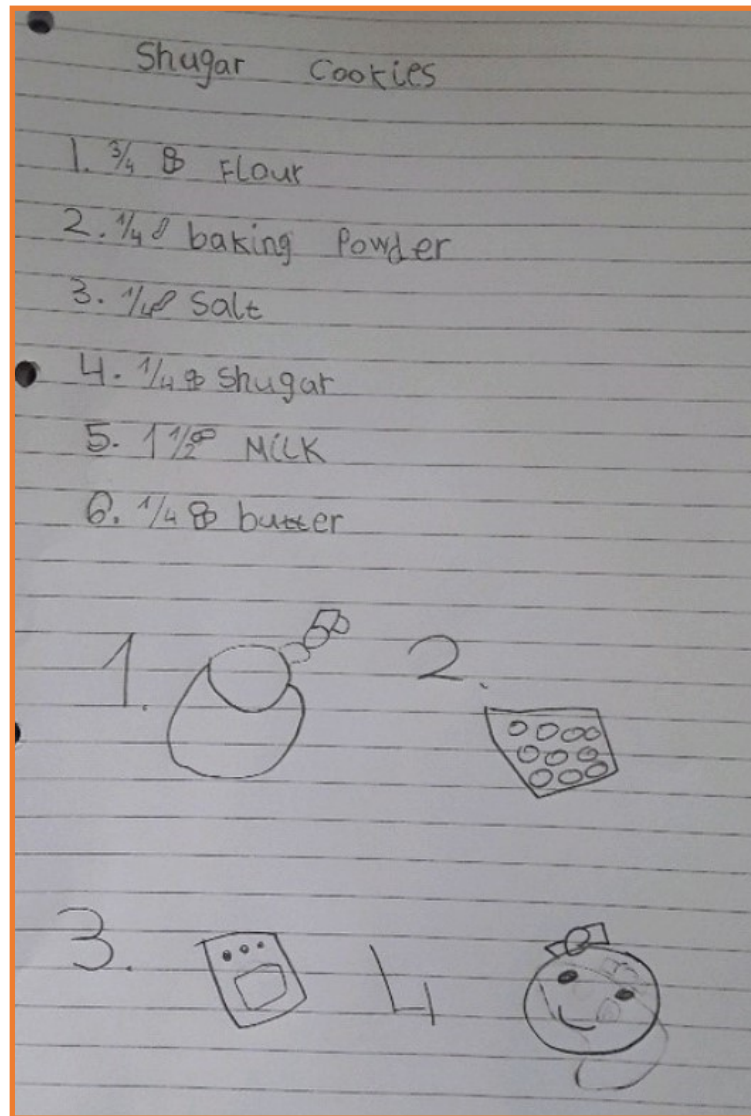 Shugar Cookies
1. 3/4 Flour
2. 1/4 baking Powder
3. 1/4 Salt
4. 1/4 Shugar
5. 1 1/2 MiLK
6. 1/4 butter
1. 2.
3. 4